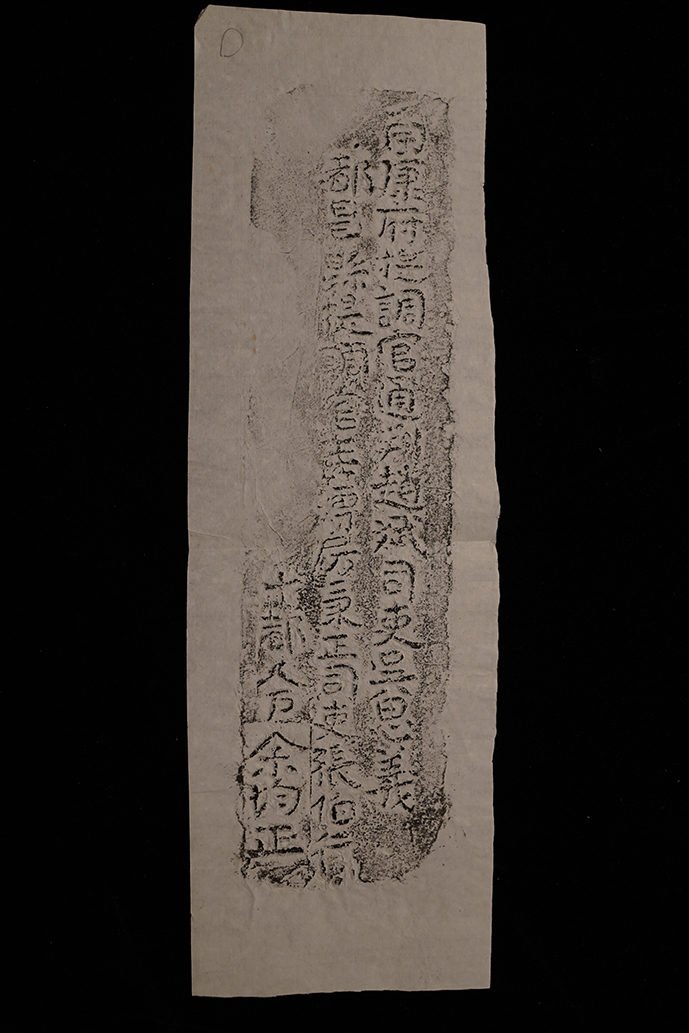 南康府提調官通判趙斌司吏呂思義
都昌縣提調官主簿房秉正司吏張伯行
都人戶余均正